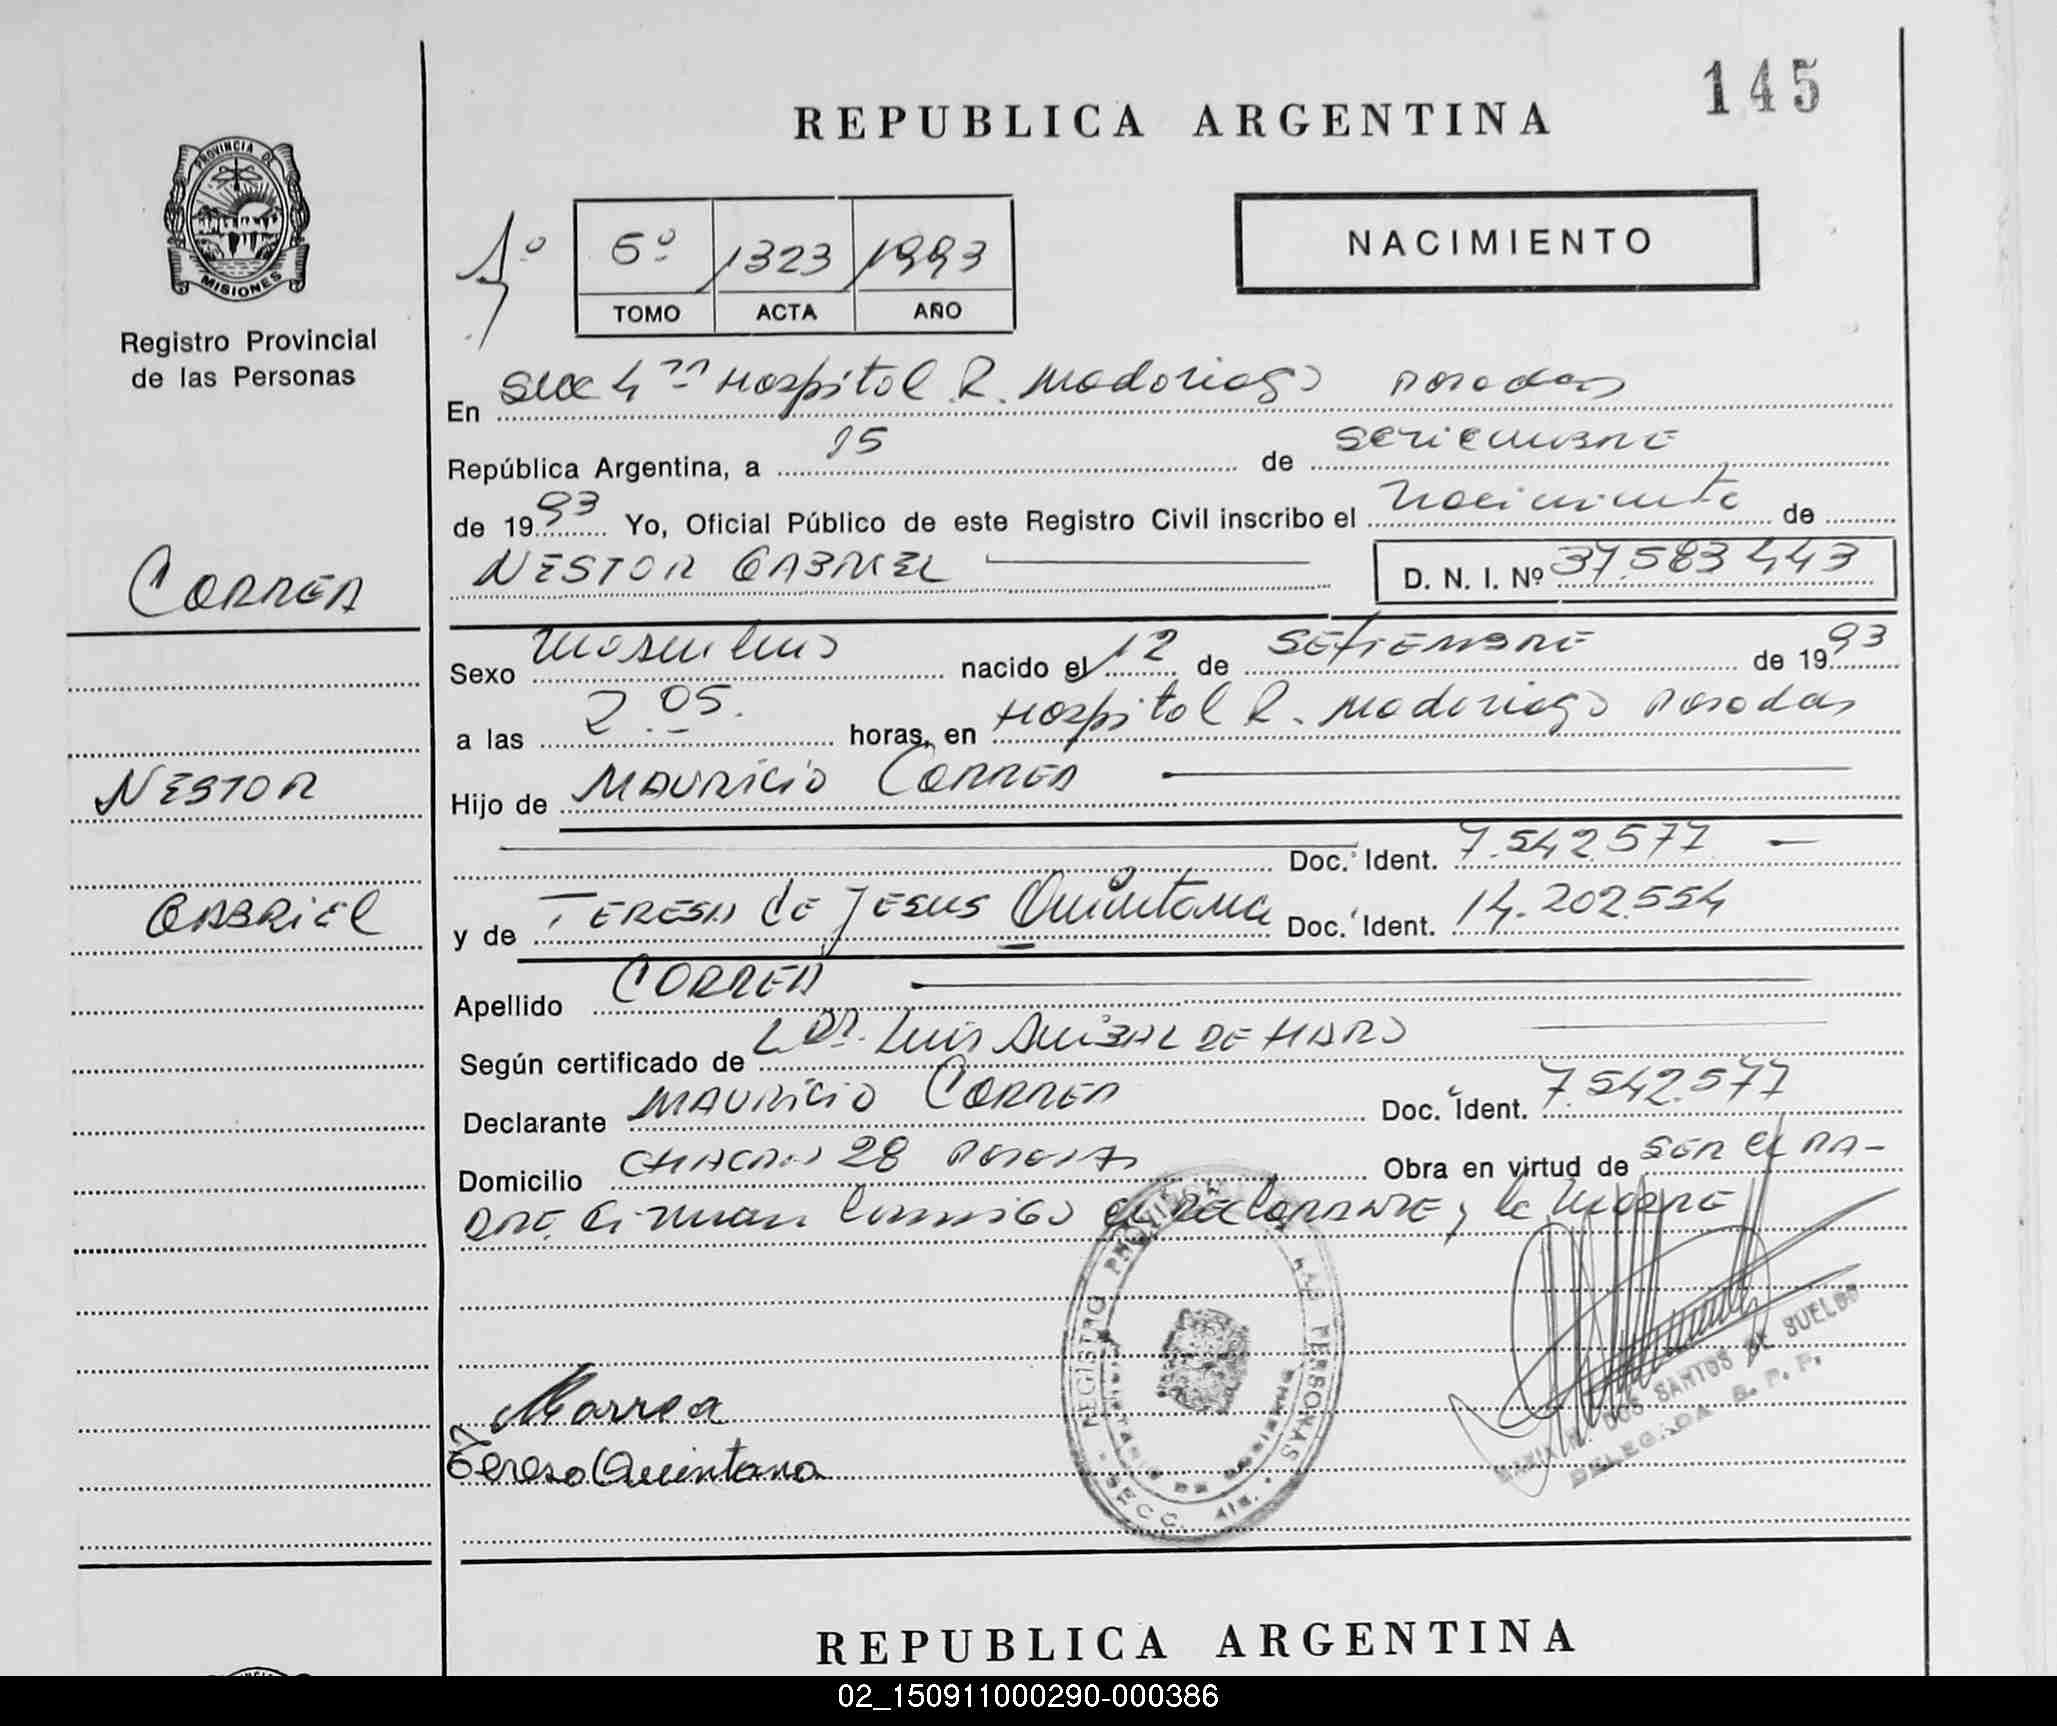 145
REPUBLICA ARGENTINA
PROVINCIA DE
MISIONES
Registro Provincial
de las Personas
1º
6º 1323 1993
TOMO ACTA AÑO
NACIMIENTO
En Secc 4ta Hospital R. Madariaga Posadas
República Argentina, a 15 de SETIEMBRE
de 1993 Yo, Oficial Público de este Registro Civil inscribo el Nacimiento de
NESTOR GABRIEL D. N. I. Nº 37.583443
CORREA
NESTOR
GABRIEL
Sexo Masculino nacido el 12 de SETIEMBRE de 1993
a las 2.05. horas, en Hospital R. Madariaga Posadas
Hijo de MAURICIO CORREA
Doc. Ident. 7.542.577
y de TERESA de JESUS Quintana Doc. Ident. 14.202.554
Apellido CORREA
Según certificado de Dr. Luis ANIBAL DE HARO
Declarante MAURICIO CORREA Doc. Ident. 7.542.577
Domicilio CHACRA 28 Posadas Obra en virtud de SER EL PA-
DRE. Firman conmigo el DECLARANTE y la MADRE
MCorrea
Teresa Quintana
REGISTRO PROVINCIAL DE LAS PERSONAS
DOS SANTOS DE SUELDO
DELEGADA R. P. P.
REPUBLICA ARGENTINA
02_150911000290-000386